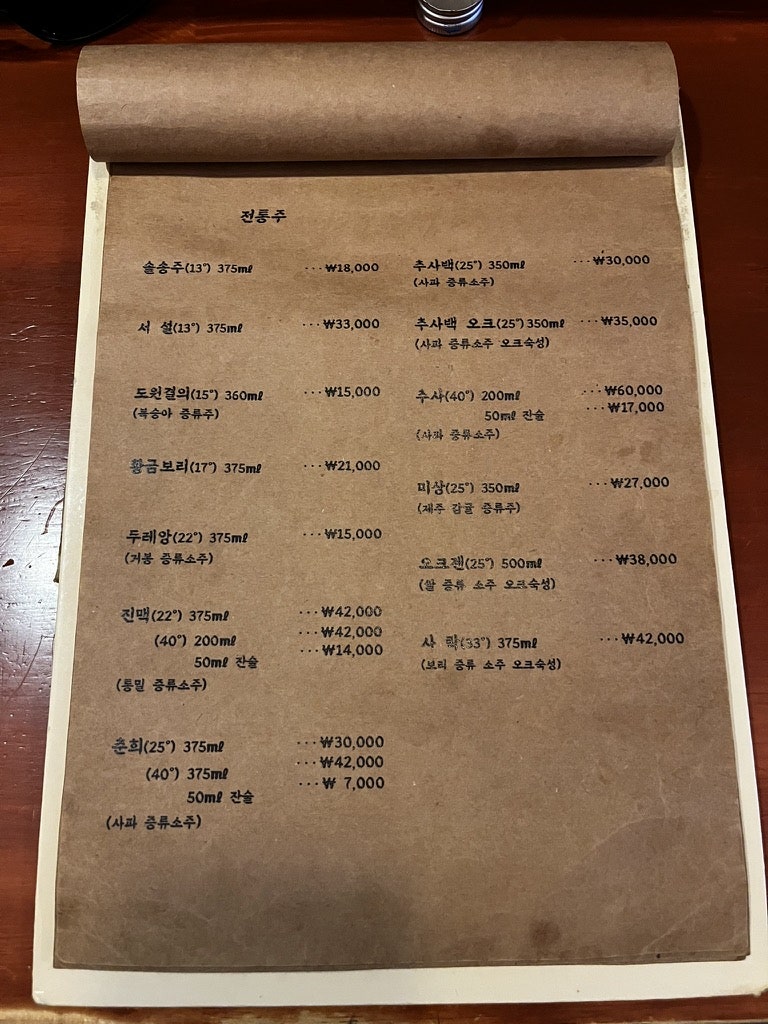 전통주
솔송주(13°) 375㎖ ···₩18,000
서 설(13°) 375㎖ ···₩33,000
도원결의(15°) 360㎖ ···₩15,000
(복숭아 증류주)
황금보리(17°) 375㎖ ···₩21,000
두레앙(22°) 375㎖ ···₩15,000
(거봉 증류소주)
진맥(22°) 375㎖ ···₩42,000
(40°) 200㎖ ···₩42,000
50㎖ 잔술 ···₩14,000
(통밀 증류소주)
춘희(25°) 375㎖ ···₩30,000
(40°) 375㎖ ···₩42,000
50㎖ 잔술 ···₩ 7,000
(사파 증류소주)
추사백(25°) 350㎖ ···₩30,000
(사파 증류소주)
추사백 오크(25°) 350㎖ ···₩35,000
(사파 증류소주 오크숙성)
추사(40°) 200㎖ ···₩60,000
50㎖ 잔술 ···₩17,000
(사파 증류소주)
미상(25°) 350㎖ ···₩27,000
(제주 감귤 증류주)
오크젠(25°) 500㎖ ···₩38,000
(쌀 증류 소주 오크숙성)
사 락(33°) 375㎖ ···₩42,000
(보리 증류 소주 오크숙성)